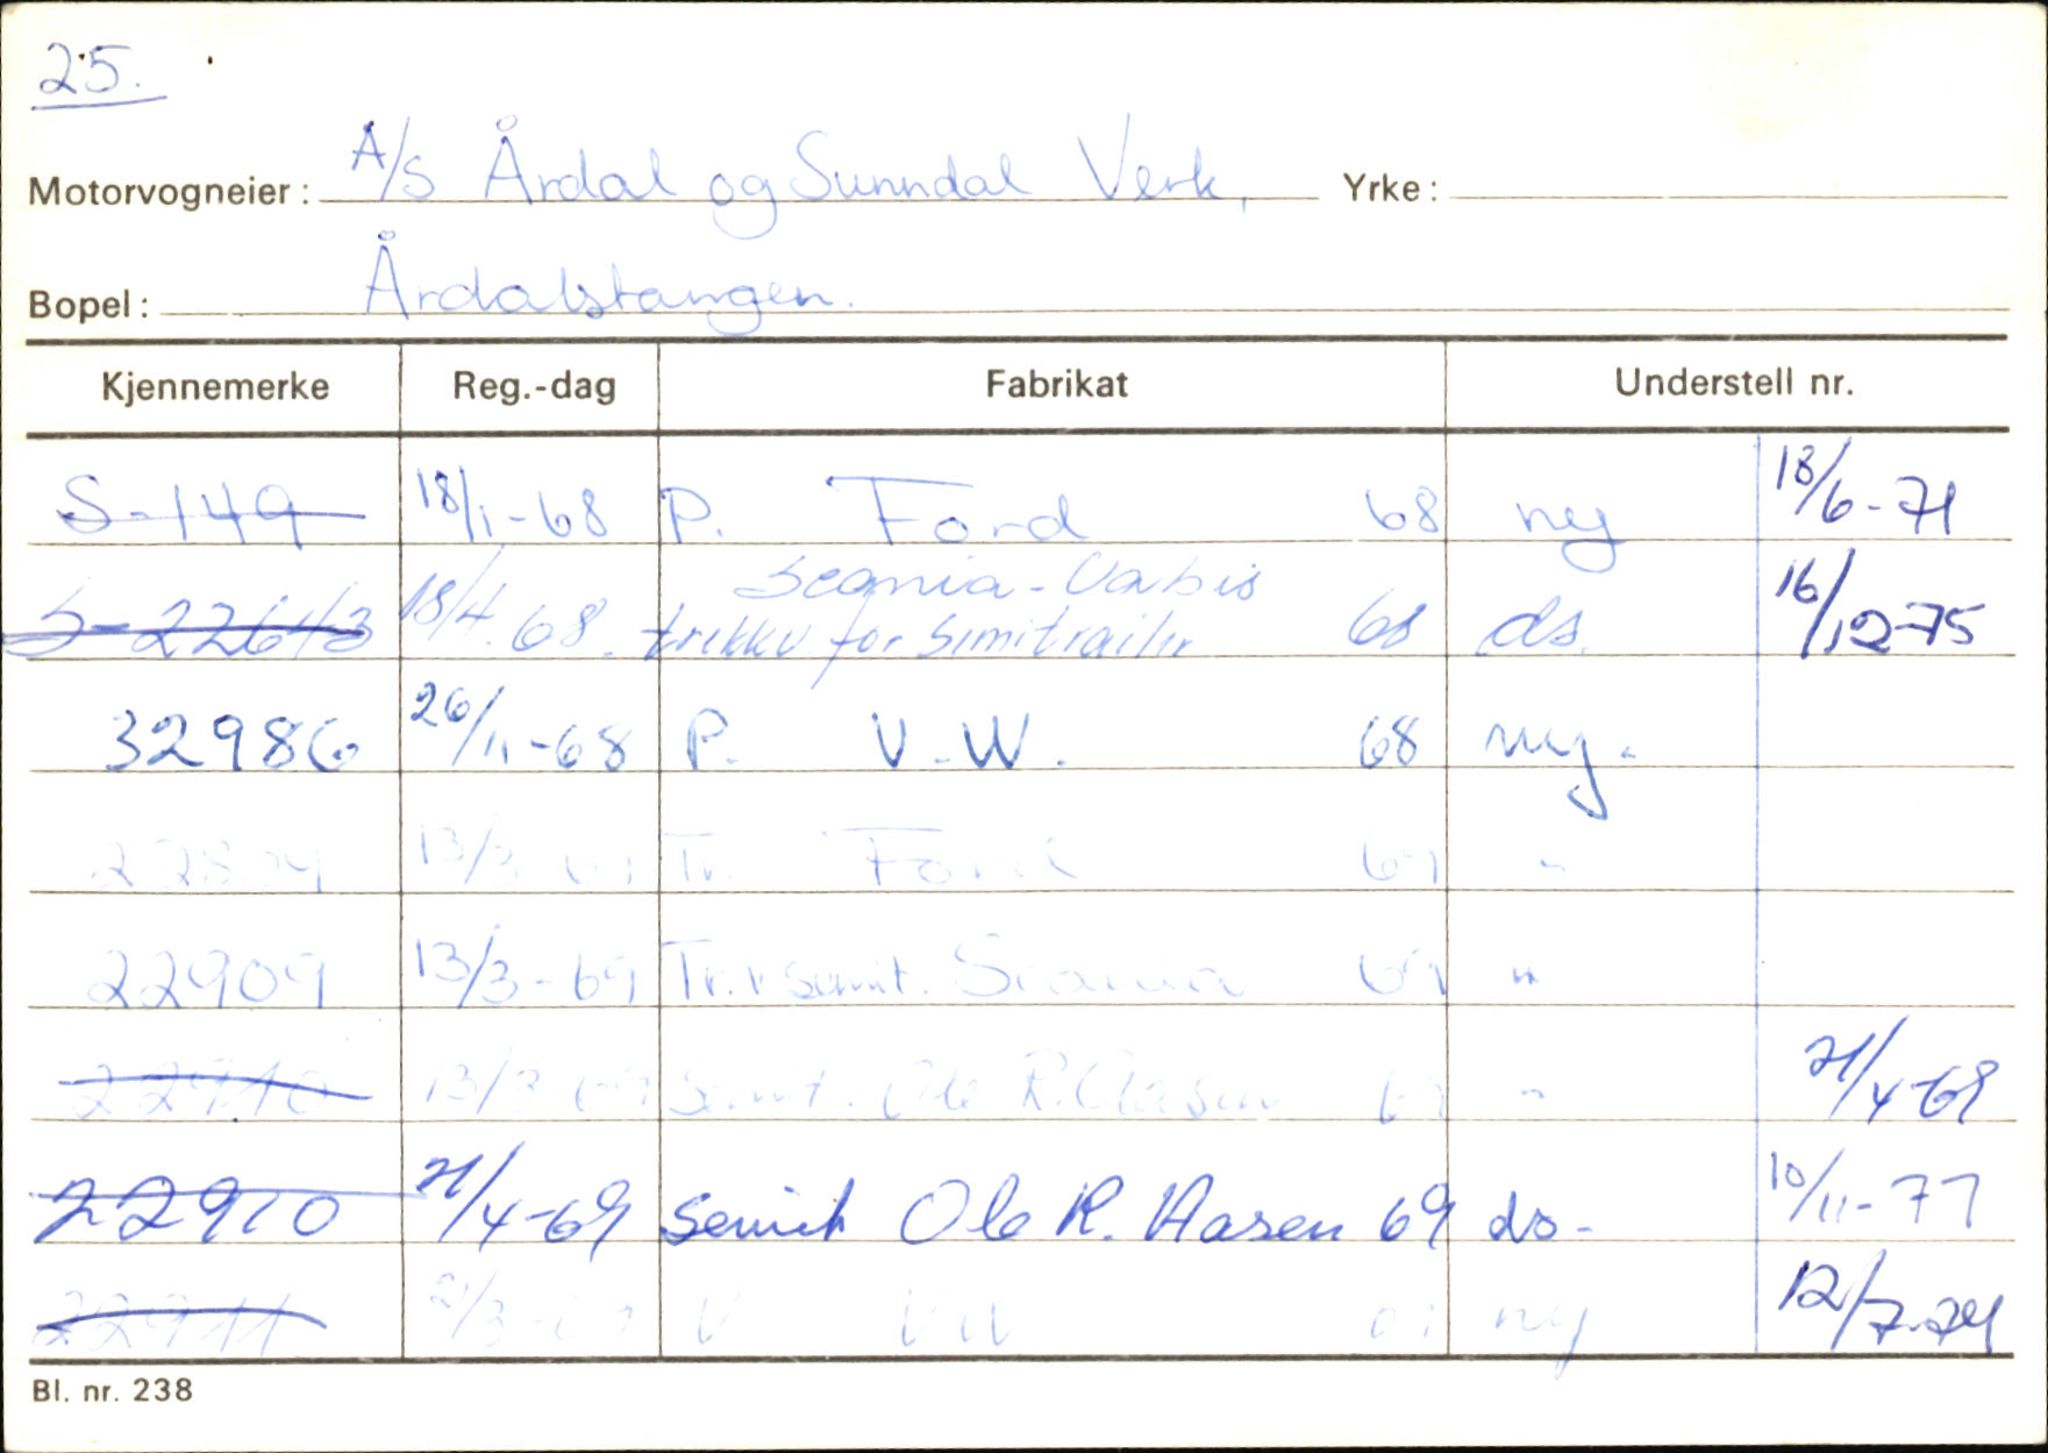 25.
Motorvogneier: A/S Årdal og Sunndal Verk, Yrke:
Bopel: Årdalstangen.
Kjennemerke Reg.-dag Fabrikat Understell nr.
S-149 18/1-68 P. Ford 68 ny 18/6-71
Scania-Vabis
S-22643 18/4.68. trekkv for semitrailer 68 ds. 16/12-75
32986 26/11-68 P. V.W. 68 ny.
13/3 69 Tr. Ford 69 "
22909 13/3-69 Tr.v semit. Scania 69 "
22910 13/3 69 Semit. Ole R. Aasen 69 " 21/4-69
22910 21/4-69 semit Ole R. Aasen 69 do- 10/11-77
22911 21/3-69 V VW 69 ny 12/7-74
Bl. nr. 238